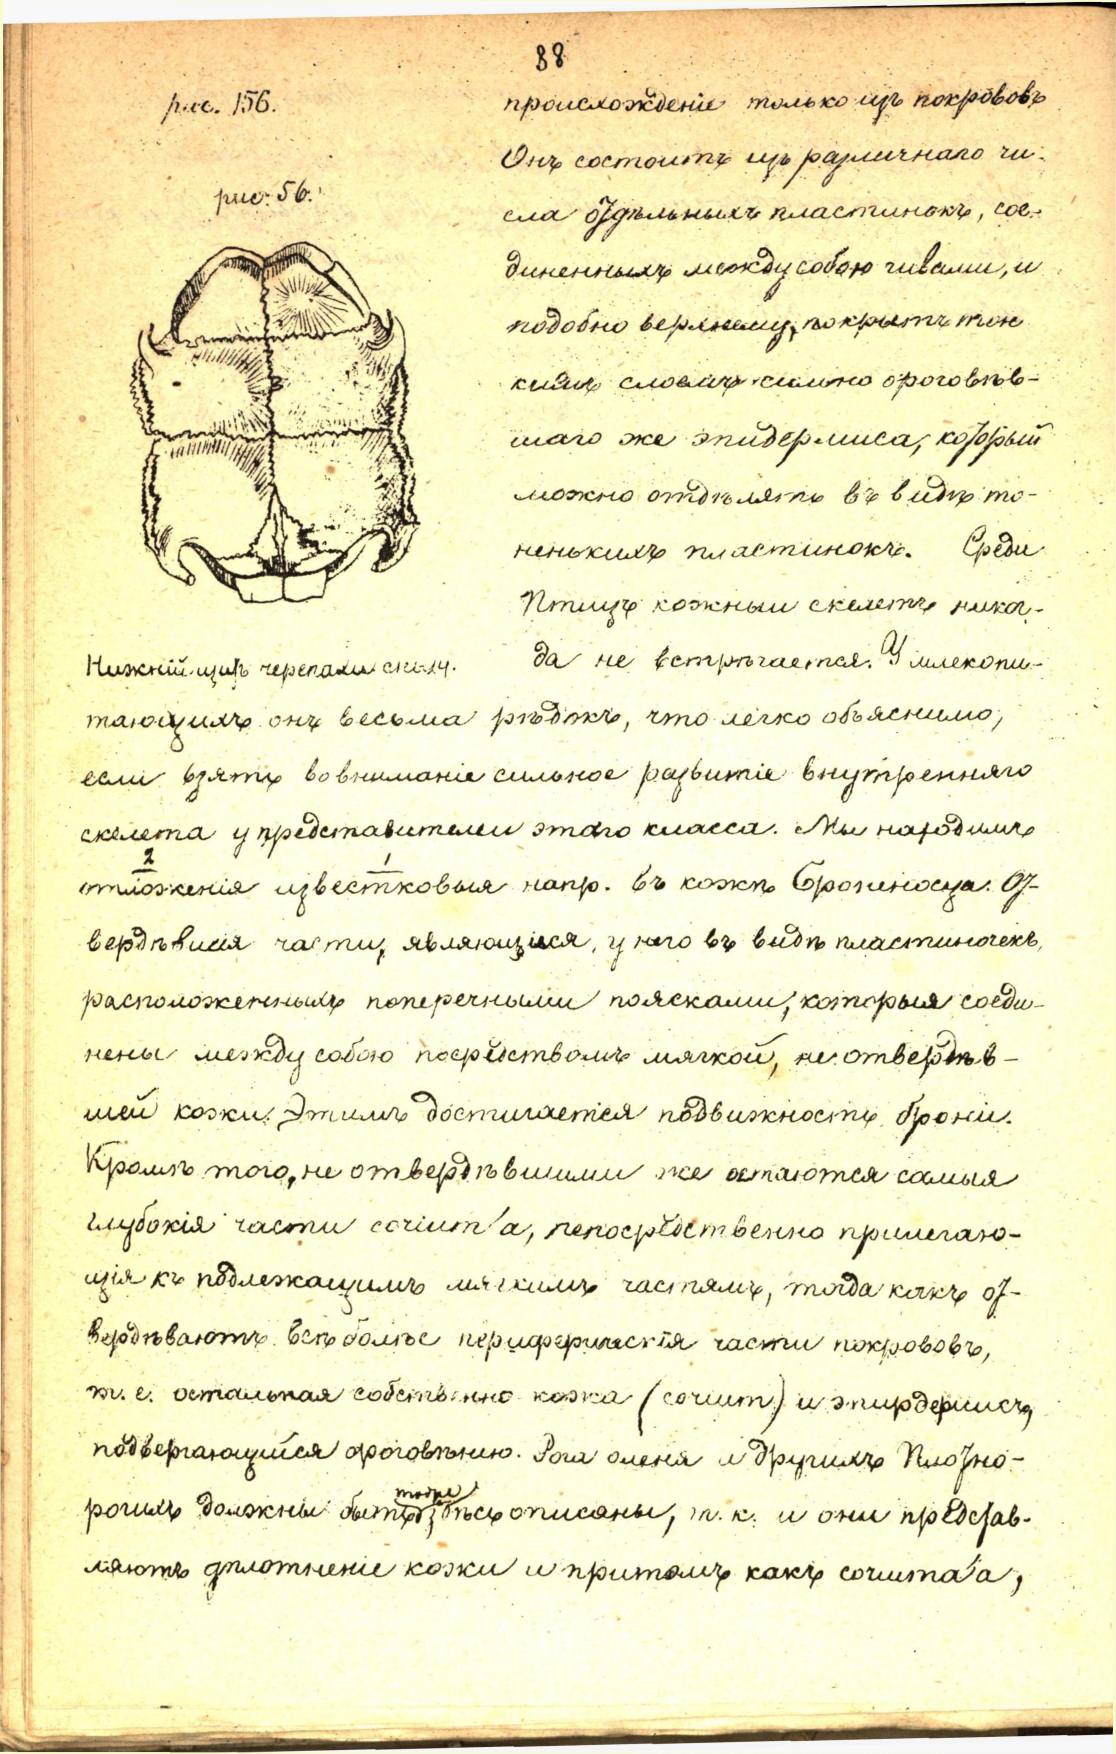 88
рис. 156.
рис. 56.
происхожденіе только изъ покрововъ
Онъ состоитъ изъ различнаго чи-
сла отдѣльныхъ пластинокъ, сое-
диненныхъ между собою швами, и
подобно верхнему, покрытъ тон
кимъ слоемъ сильно ороговѣв-
шаго же эпидермиса, который
можно отдѣлять въ видѣ то-
ненькихъ пластинокъ. Среди
Птицъ кожный скелетъ никог-
Нижній щитъ черепахи
да не встрѣчается. У млекопи-
тающихъ онъ весьма рѣдокъ, что легко объяснимо,
если взять во вниманіе сильное развитіе внутренняго
скелета у представителей этого класса. Мы находимъ
2 1
отложенія известковыя напр. въ кожѣ Броненосца. От-
вердѣвшія части, являющіяся, у него въ видѣ пластиночекъ,
расположенныхъ поперечными поясками, которыя соеди-
нены между собою посредствомъ мягкой, не отвердѣв-
шей кожи. Этимъ достигается подвижность брони.
Кромѣ того, не отвердѣвшими же остаются самыя
глубокія части corium'а, непосредственно прилегаю-
щія къ подлежащимъ мягкимъ частямъ, тогда какъ от-
вердѣваютъ всѣ болѣе периферическія части покрововъ,
т. е. остальная собственно кожа (corium) и эпидермисъ,
подвергающійся ороговѣнію. Рога оленя и другихъ Плотно-
тоже
рогихъ должны быть здѣсь описаны, т. к. и они представ-
ляютъ уплотненіе кожи и притомъ какъ corium'а,